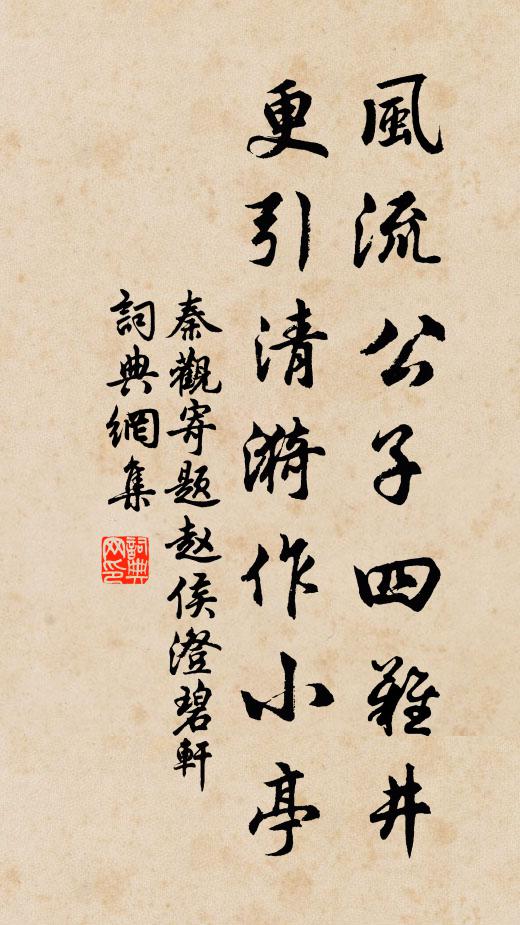 風流公子四難並
更引清漪作小亭
秦觀寄題赵侯澄碧軒
詞典網集
詞典網印